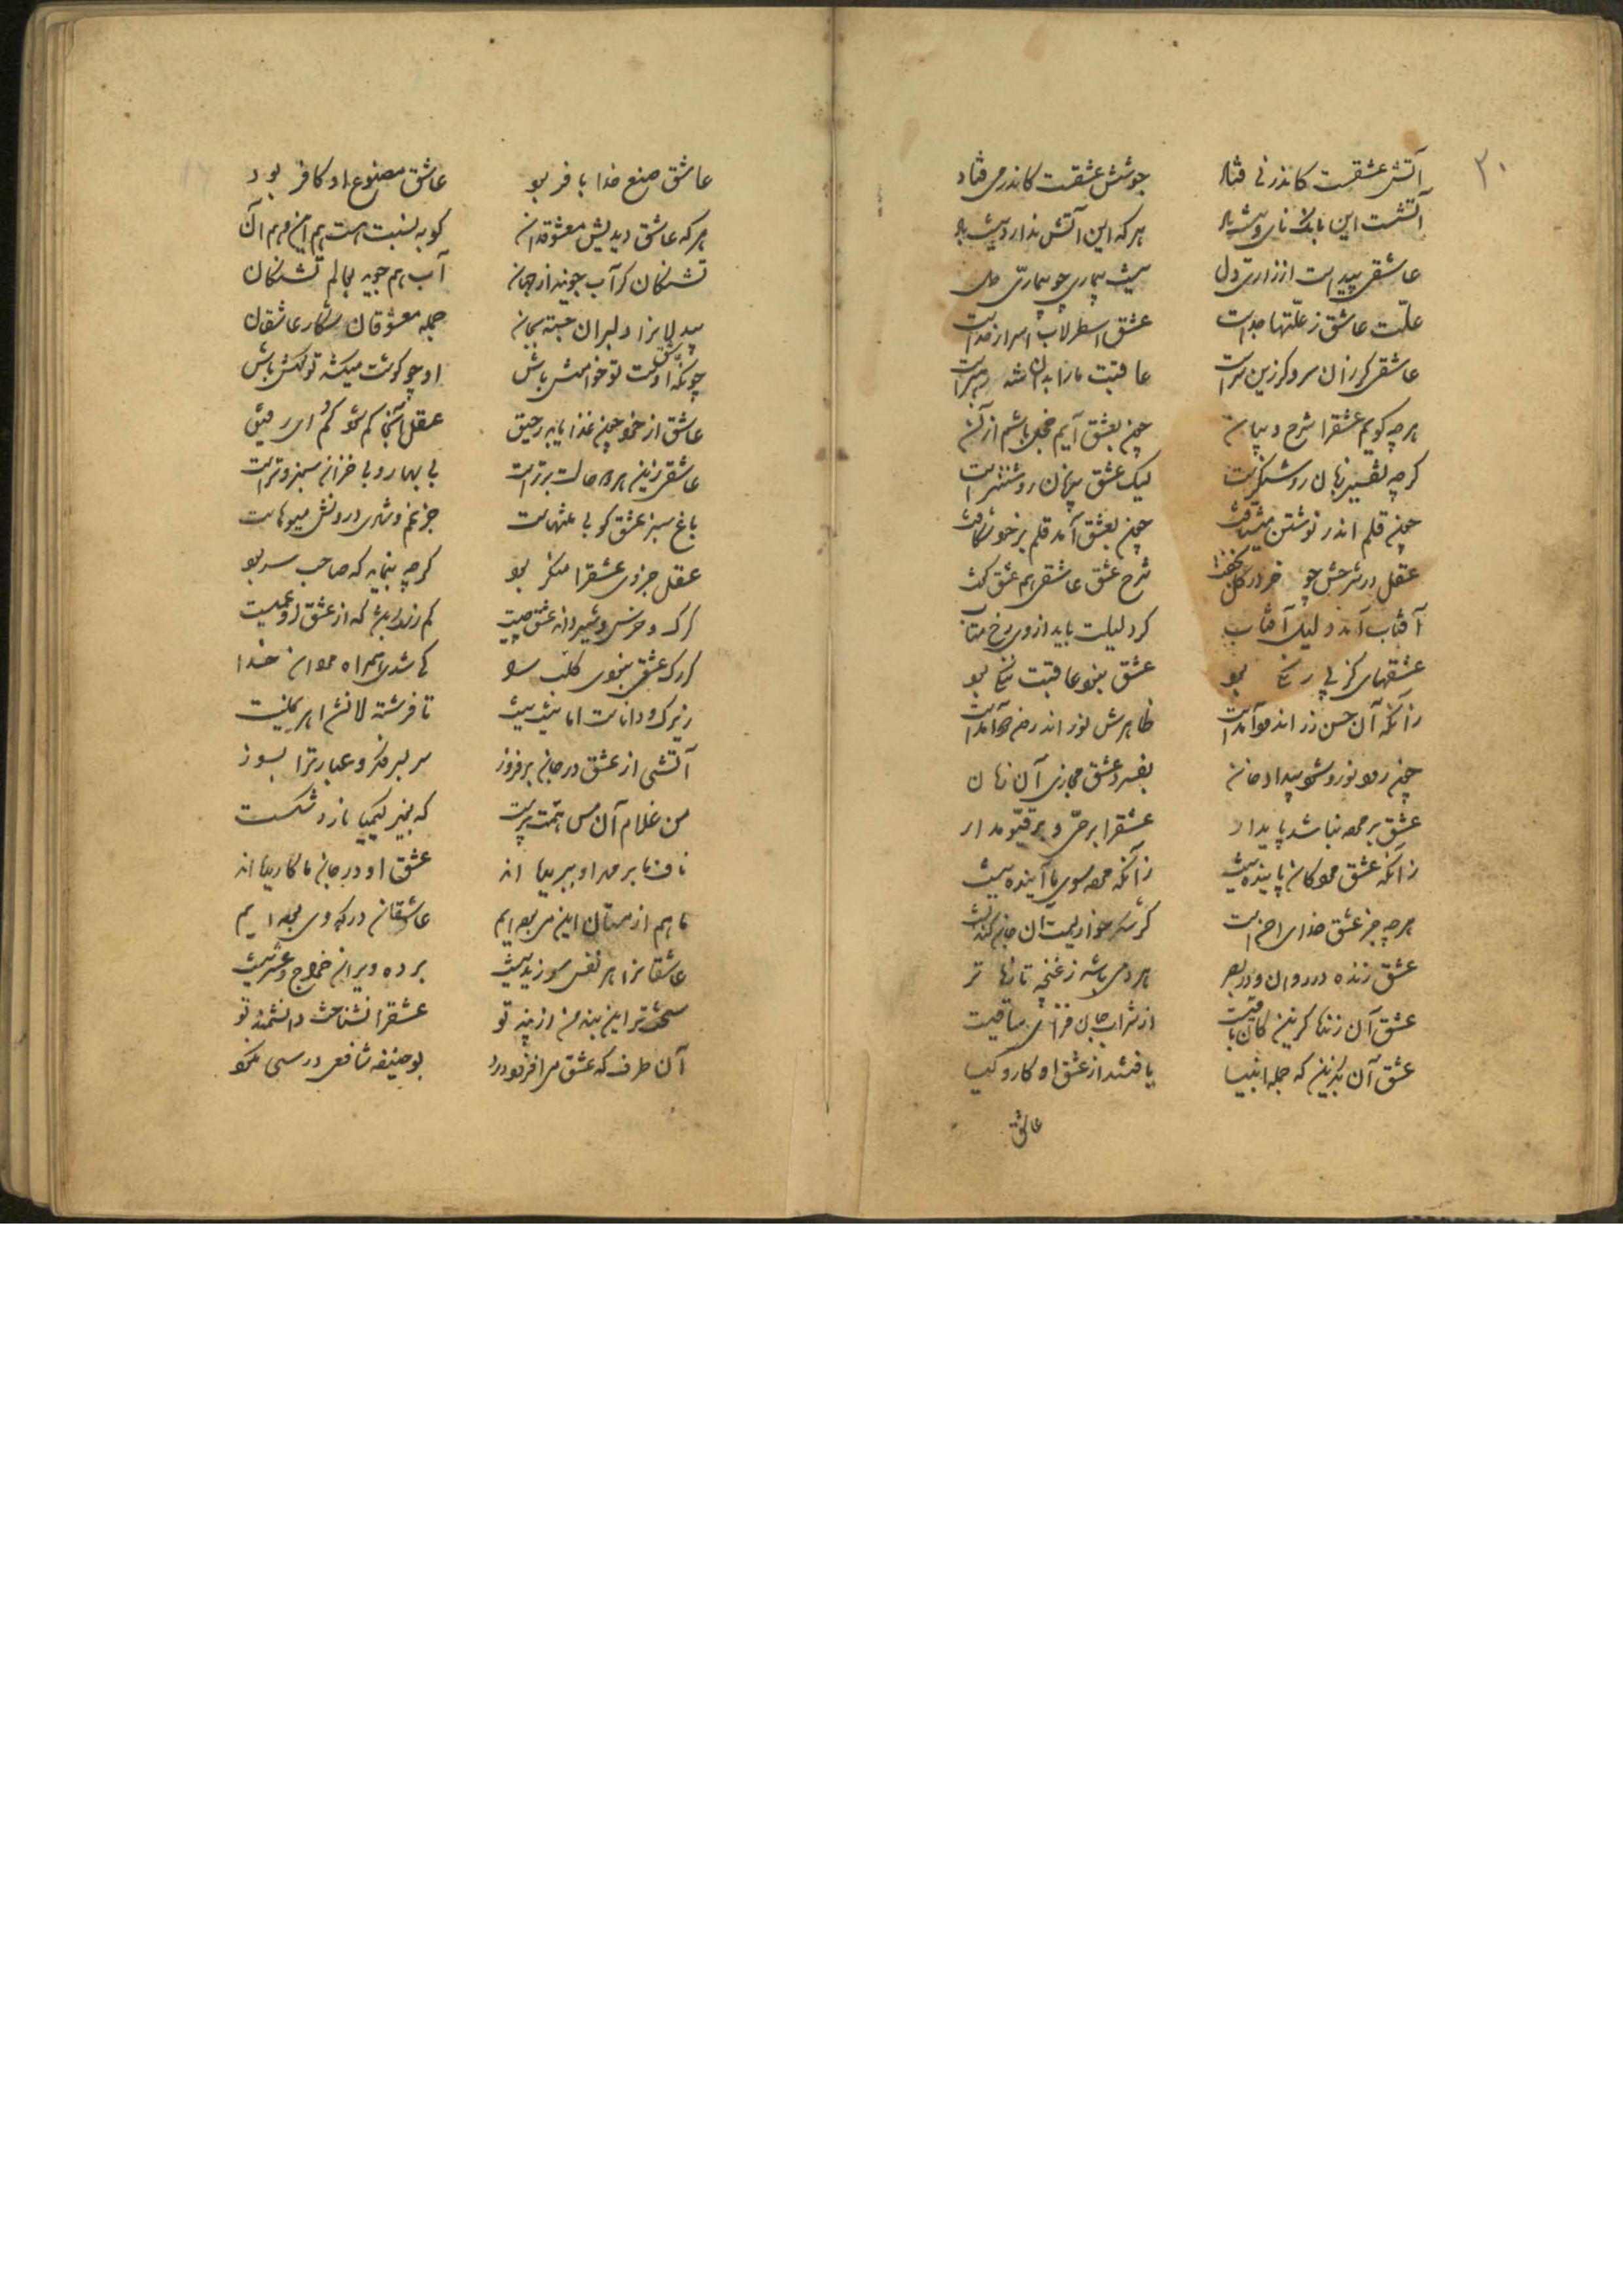 ۲۰
آتش عشقست کاندر نی فتاد جوشش عشقست کاندر می فتاد
آتشست این بانک نای و نیست باد هر که این آتش ندارد نیست باد
عاشقی پیداست از زاری دل نیست بیماری چو بیماری دل
علت عاشق ز علتها جداست عشق اسطرلاب اسرار خداست
عاشقی کر زان سر و کر زین سرست عاقبت ما را بدان شه رهبرست
هر چه کویم عشقرا شرح و بیان چون بعشق آیم خجل باشم از آن
کرچه تفسیر زبان روشنکرست لیک عشق بی زبان روشنترست
چون قلم اندر نوشتن میشتافت چون بعشق آمد قلم بر خود شکافت
عقل در شرحش چو خر در کل بخفت شرح عشق و عاشقی هم عشق کفت
آفتاب آمد دلیل آفتاب کر دلیلت باید از وی رخ متاب
عشقهای کز پی رنکی بود عشق نبود عاقبت ننکی بود
زآنکه آن حسن زر اندود آمدست ظاهرش نور اندرون دود آمدست
چون رود نور و شود پیدا دخان بفسرد عشق مجازی آن زمان
عشق بر مرده نباشد پایدار عشقرا بر حی و بر قیوم دار
زآنکه عشق مردکان پاینده نیست زآنکه مرده سوی ما آینده نیست
هر چه جز عشق خدای احسنست کر شکر خواریست آن جان کندنست
عشق زنده در روان و در بصر هر دمی باشد ز غنچه تازه تر
عشق آن زنده کزین کان باقیست از شراب جان فزای ساقیست
عشق آن بکزین که جمله انبیا یافتند از عشق او کار و کیا
عاشق
عاشق صنع خدا با فر بود عاشق مصنوع او کافر بود
هر که عاشق دیدیش معشوق دان کو به نسبت هست هم این و هم آن
تشنکان کر آب جویند از جهان آب هم جوید بعالم تشنکان
بیدلانرا دلبران جسته بجان جمله معشوقان شکار عاشقان
چونکه عاشق اوست تو خاموش باش او چو کوشت میکشد تو کوش باش
عاشق از خود چون غذا یابد رحیق عقل آنجا کم شود کم ای رفیق
عاشقی زین هر دو حالت برترست بی بهار و بی خزان سبز و ترست
باغ سبز عشق کو بی منتهاست جز غم و شادی درونش میوهاست
عقل جزوی عشقرا منکر بود کرچه بنماید که صاحب سر بود
کرک و خرس و شیر داند عشق چیست کم ز سک باشد که از عشق او عمیست
کر رک عشقی نبودی کلب را
زیرک و داناست اما نیست نیست تا فرشته لا نشد اهریمنیست
آتشی از عشق در جان برفروز سر بسر فکر و عبارترا بسوز
من غلام آن مس همت پرست که بغیر کیمیا نارد شکست
ناف ما بر مهر او ببریده اند عشق او در جان ما کاریده اند
ما هم از مستان این می بوده ایم عاشقان درکه وی بوده ایم
عاشقانرا هر نفس سوزیدنیست بر ده ویران خراج و عشر نیست
سختتر این بند من از پند تو عشقرا نشناخت دانشمند تو
آن طرف که عشق می افزود درد بوحنیفه شافعی درسی نکرد